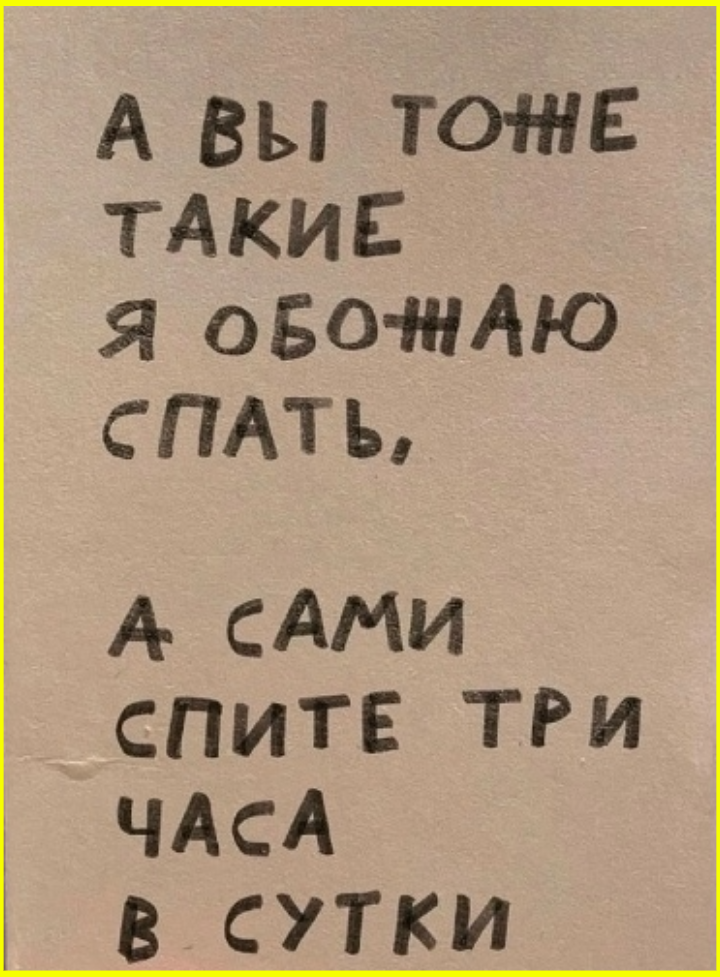 А ВЫ ТОЖЕ
ТАКИЕ
Я ОБОЖАЮ
СПАТЬ,
А САМИ
СПИТЕ ТРИ
ЧАСА
В СУТКИ